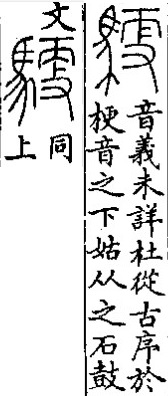 音義未詳杜從古序於
梗音之下姑从之石鼓
文
同
上